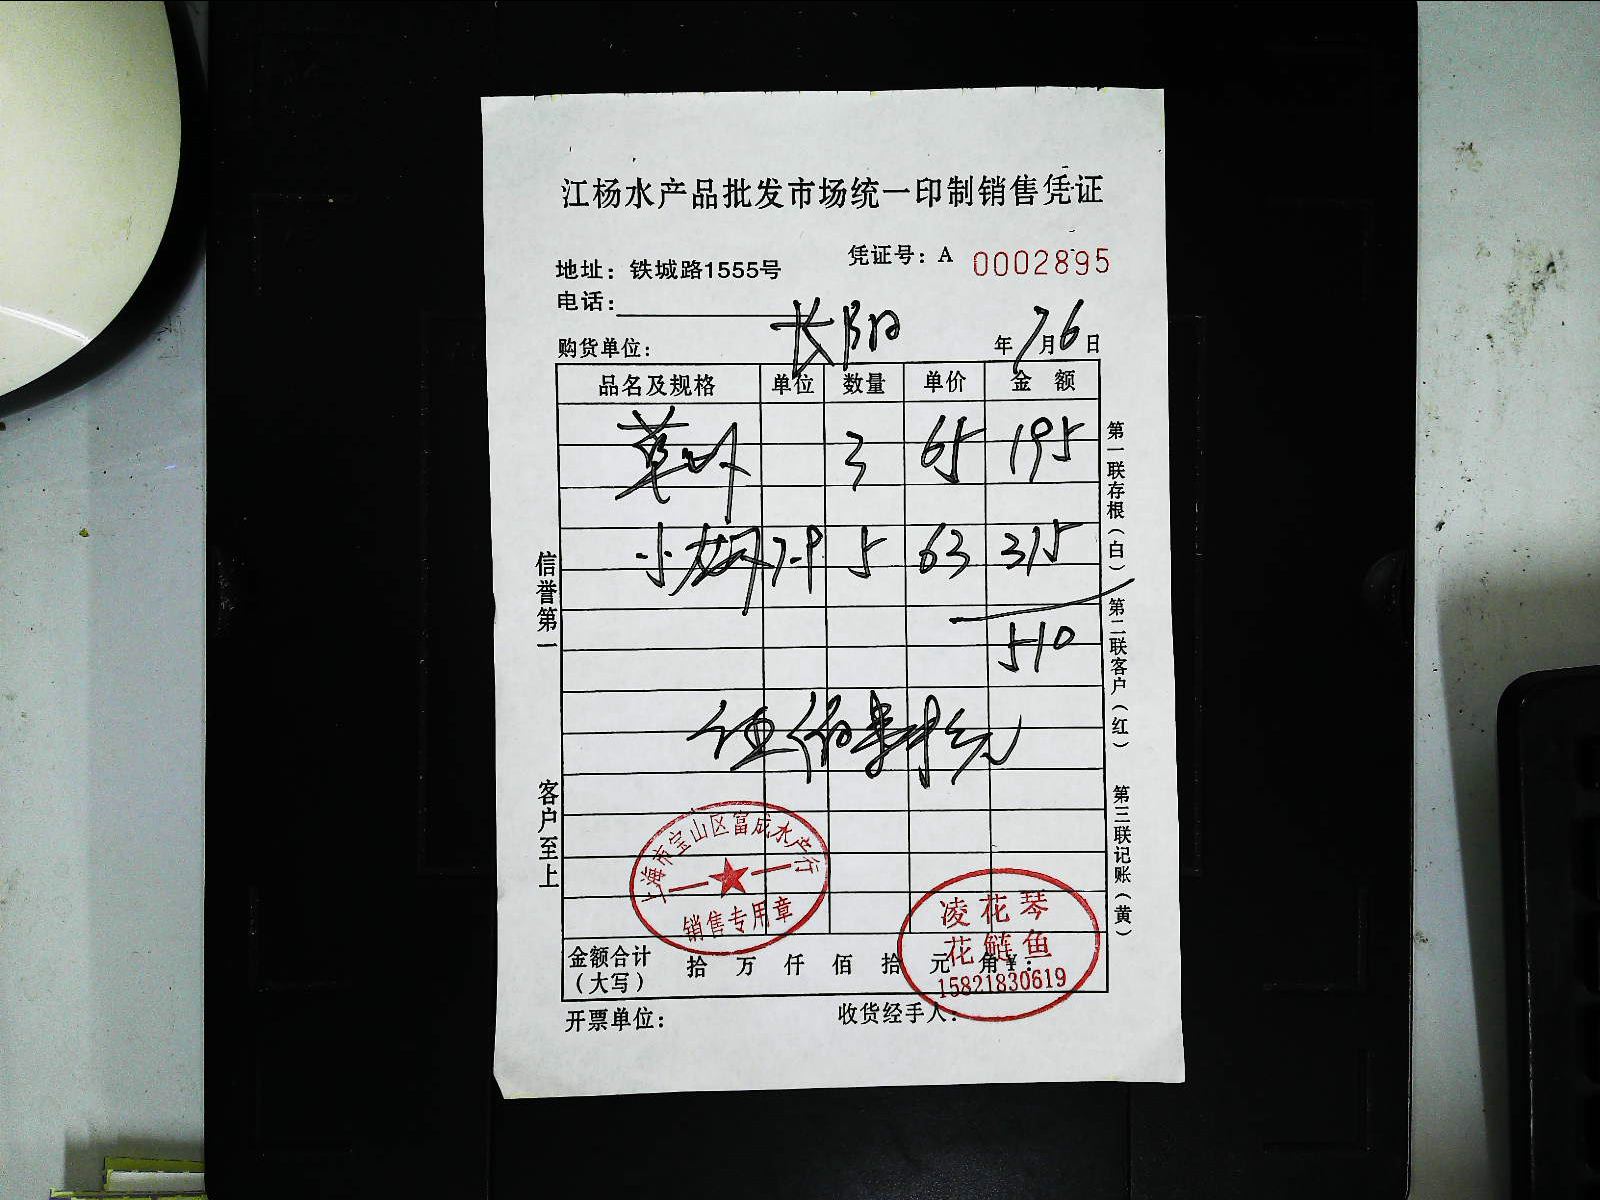 江杨水产品批发市场统一印制销售凭证
凭证号：A 0002895
地址：铁城路1555号
电话：
购货单位： 长阳 年7月6日
品名及规格 单位 数量 单价 金额
草 3 65 195
小 7-9 5 63 315
510
伍佰壹拾元
信誉第一
客户至上
第一联存根（白）
第二联客户（红）
第三联记账（黄）
上海市宝山区富成水产行
销售专用章
凌花琴
花鲢鱼
15821830619
金额合计（大写） 拾 万 仟 佰 拾 元 角 ¥：
开票单位： 收货经手人：